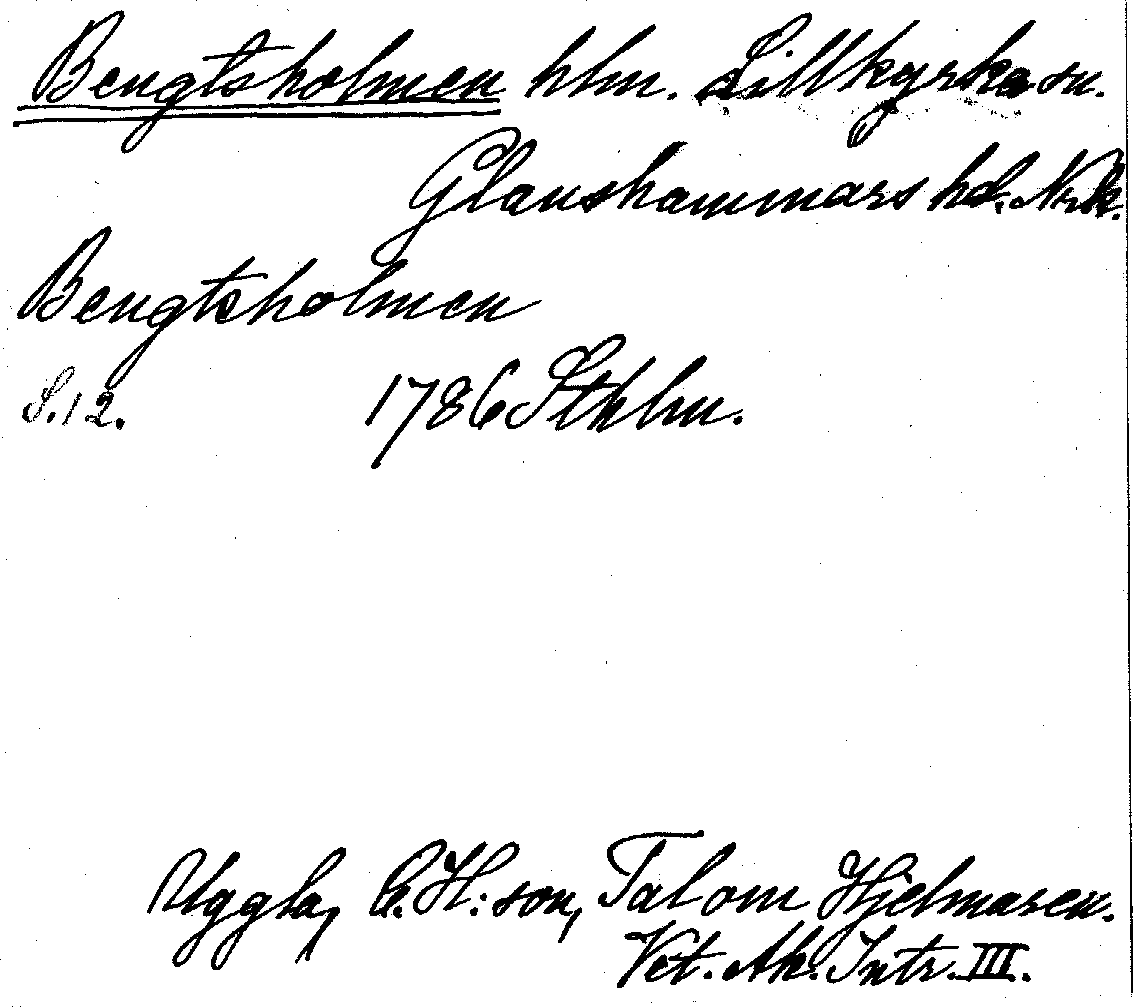 Bengtsholmen hlm. Lillkyrka sn.
Glanshammars hd. Nrk.
Bengtsholmen
S. 12. 1786 Sthlm.
Uggla, C. H:son, Tal om Hjelmaren.
Vet. Ak. Intr. III.